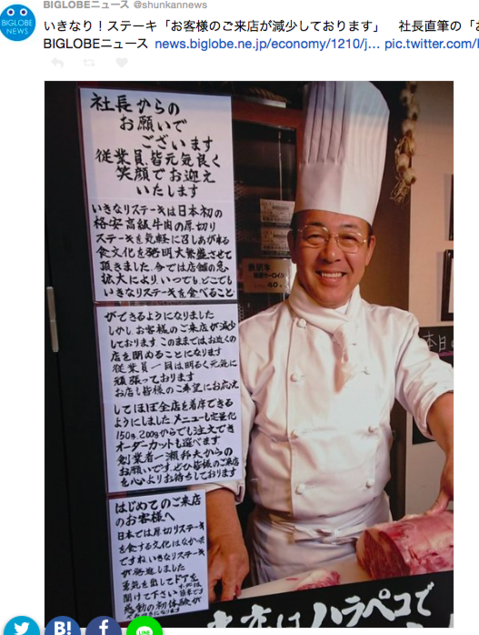 BIGLOBEニュース @shunkannews
BIGLOBE
NEWS
いきなり！ステーキ「お客様のご来店が減少しております」 社長直筆の「お
BIGLOBEニュース news.biglobe.ne.jp/economy/1210/j… pic.twitter.com/
社長からの
お願いで
ございます
従業員、皆元気良く
笑顔でお迎え
いたします
いきなりステーキは日本初の
格安高級牛肉の厚切り
ステーキを気軽に召しあがれる
食文化を発明大繁盛させて
頂きました。今では店舗の急
拡大により、いつでもどこでも
いきなりステーキを食べること
ができるようになりました
しかし、お客様のご来店が減少
しております このままではお近くの
店を閉めることになります
従業員一同は明るく元気に
頑張っております
お店も皆様のご希望にお応え
してほぼ全店を着席できる
ようにしました メニューも定量化
150g、200gからでも注文でき
オーダーカットも選べます
創業者一瀬邦夫からの
お願いです。ぜひ皆様のご来店
を心よりお待ちしております
はじめてのご来店
のお客様へ
日本では厚切りステーキ
を食する文化はなかった
ですねいきなりステーキ
が発明しました
勇気を出してドアを
開けて下さい
感動の初体験が
本日の
ハラペコで
B!
f
LINE